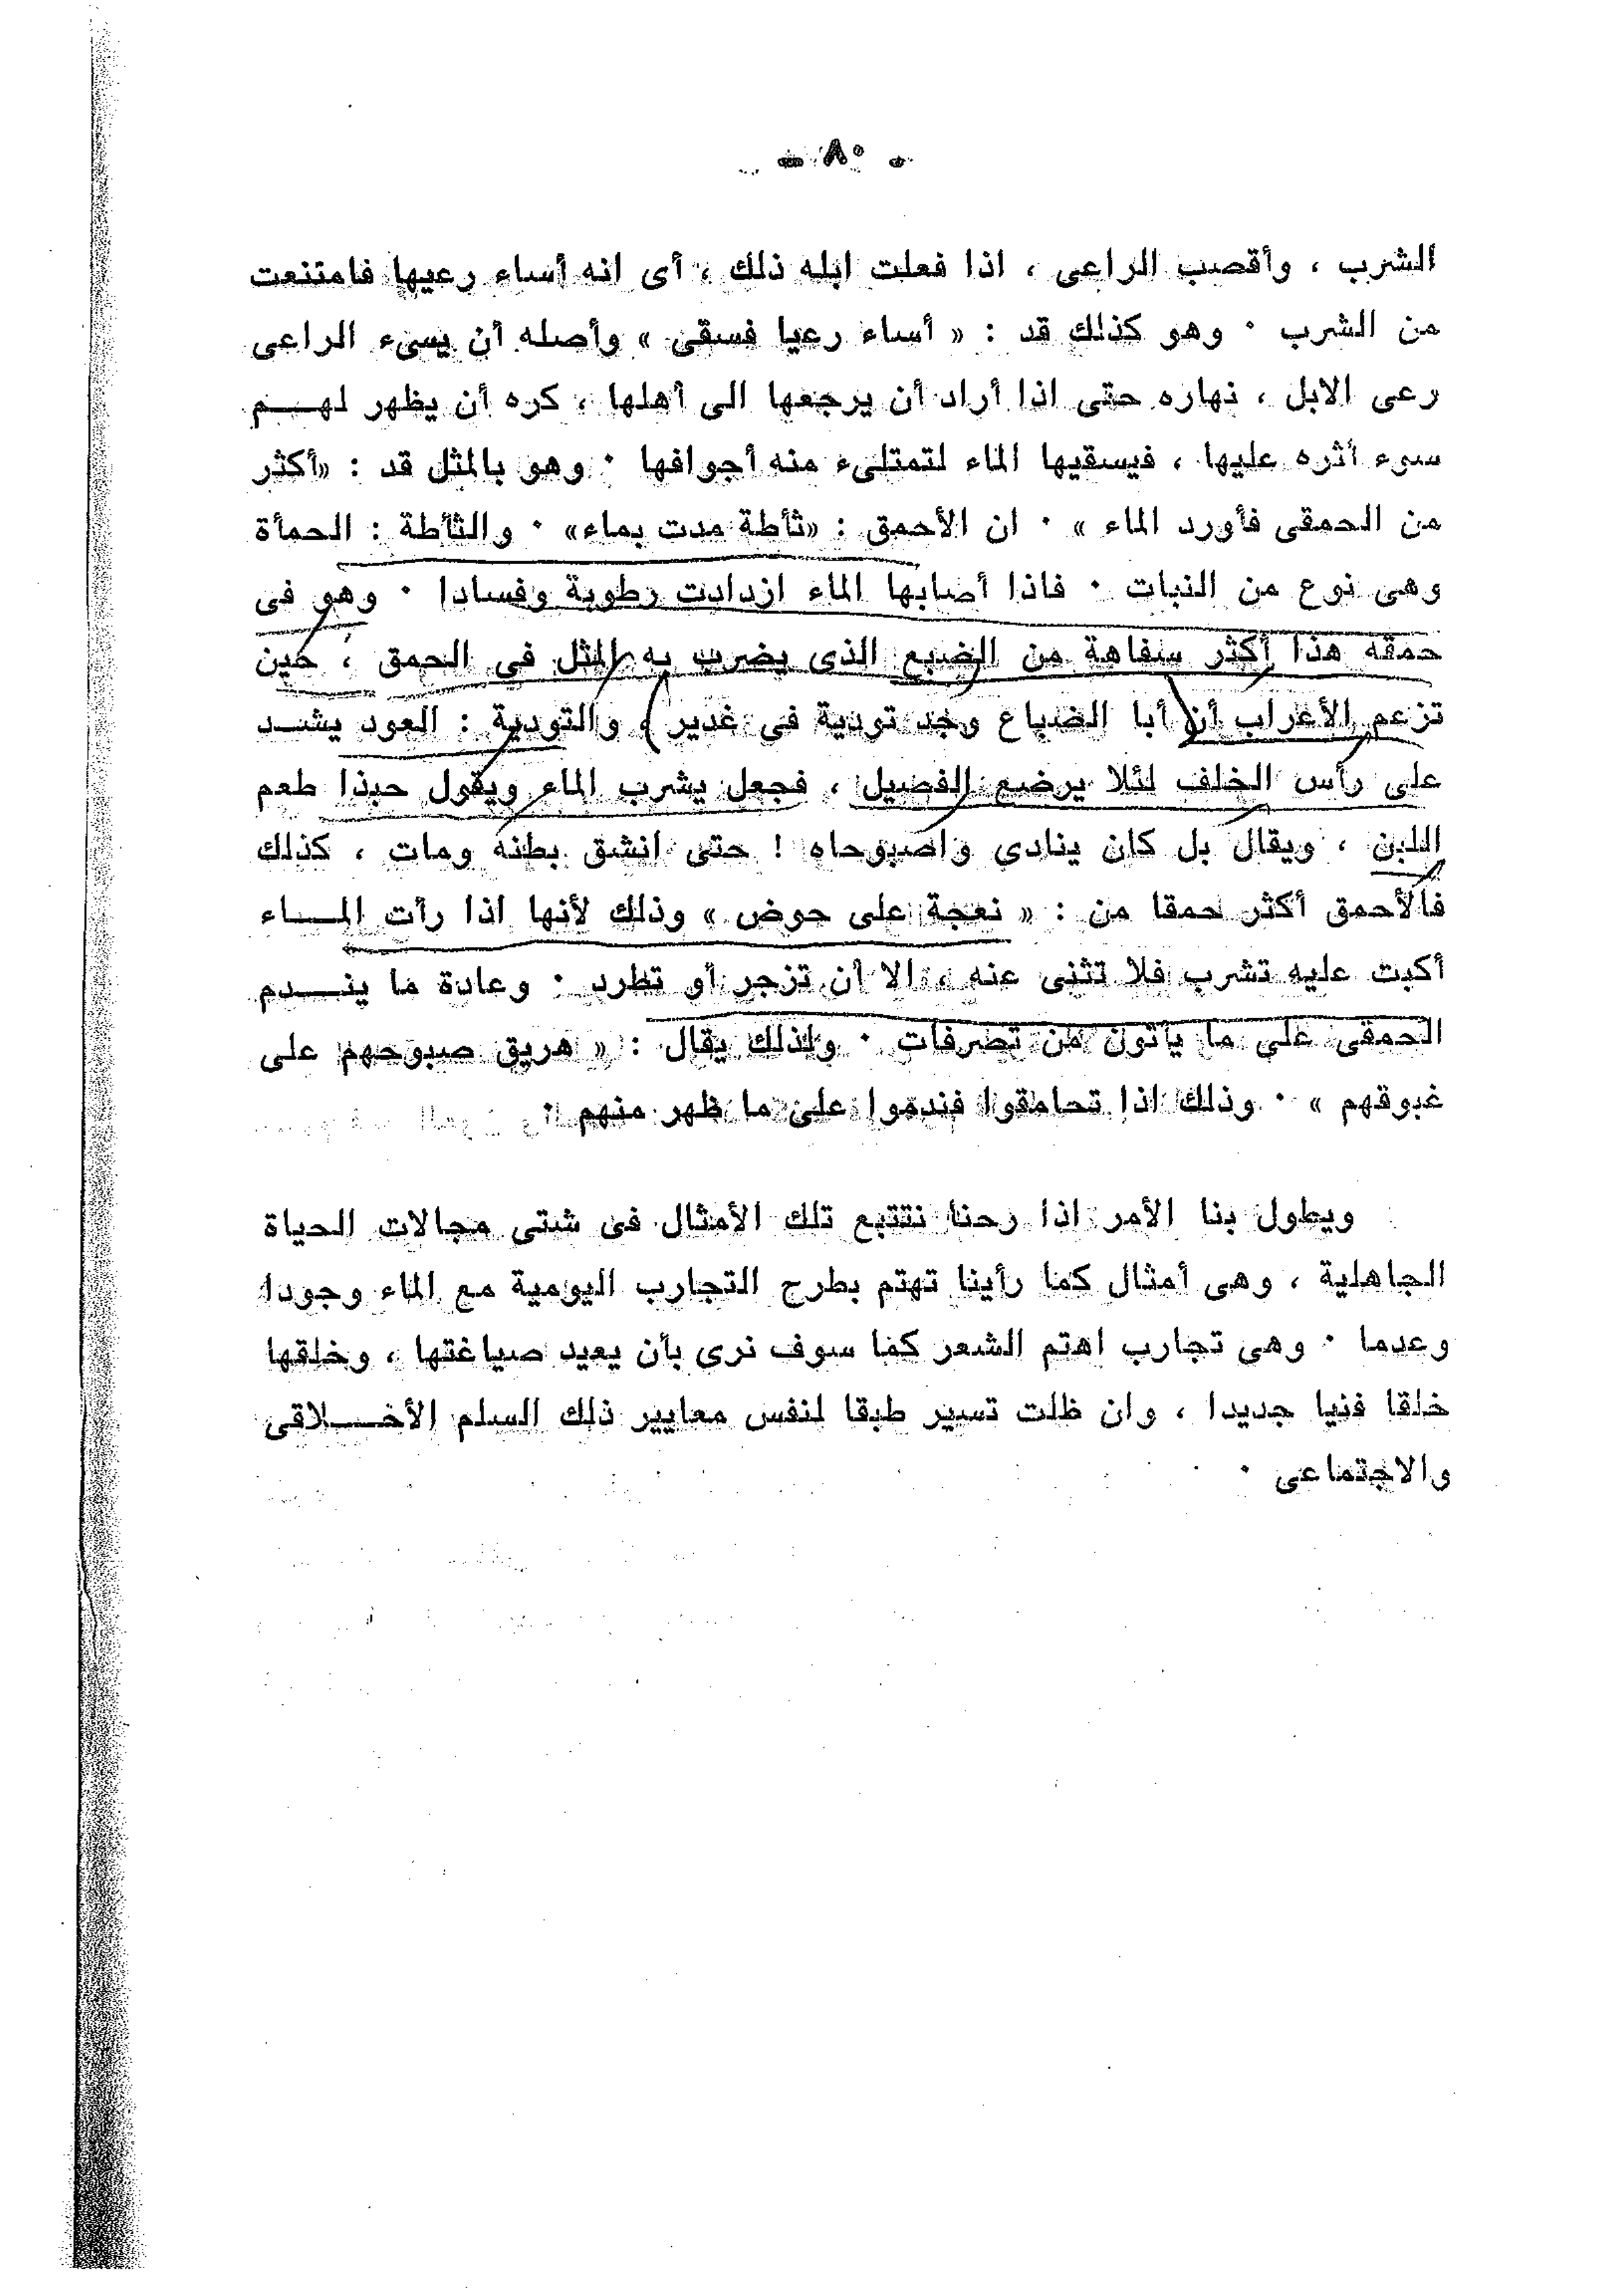 — ٨٠ —
الشرب ، وأقصب الراعى ، اذا فعلت ابله ذلك ، أى انه أساء رعيها فامتنعت
من الشرب ٠ وهو كذلك قد : « أساء رعيا فسقى » وأصله أن يسىء الراعى
رعى الابل ، نهاره حتى اذا أراد أن يرجعها الى أهلها ، كره أن يظهر لهـــم
سوء أثره عليها ، فيسقيها الماء لتمتلىء منه أجوافها ٠ وهو بالمثل قد : «أكثر
من الحمقى فأورد الماء » ٠ ان الأحمق : «ثأطة مدت بماء» ٠ والثأطة : الحمأة
وهى نوع من النبات ٠ فاذا أصابها الماء ازدادت رطوبة وفسادا ٠ وهو فى
حمقه هذا أكثر سفاهة من الضبع الذى يضرب به المثل فى الحمق ، حين
تزعم الأعراب أن أبا الضباع وجد تودية فى غدير ، والتودية : العود يشـد
على رأس الخلف لئلا يرضع الفصيل ، فجعل يشرب الماء ويقول حبذا طعم
اللبن ، ويقال بل كان ينادي واصبوحاه ! حتى انشق بطنه ومات ، كذلك
فالأحمق أكثر حمقا من : « نعجة على حوض » وذلك لأنها اذا رأت المـــاء
أكبت عليه تشرب فلا تثنى عنه ، الا أن تزجر أو تطرد ٠ وعادة ما ينـــدم
الحمقى على ما يأتون من تصرفات ٠ ولذلك يقال : « هريق صبوحهم على
غبوقهم » ٠ وذلك اذا تحامقوا فندموا على ما ظهر منهم ٠
ويطول بنا الأمر اذا رحنا نتتبع تلك الأمثال فى شتى مجالات الحياة
الجاهلية ، وهى أمثال كما رأينا تهتم بطرح التجارب اليومية مع الماء وجودا
وعدما ٠ وهى تجارب اهتم الشعر كما سوف نرى بأن يعيد صياغتها ، وخلقها
خلقا فنيا جديدا ، وان ظلت تسير طبقا لنفس معايير ذلك السلم الأخـــلاقى
والاجتماعى ٠